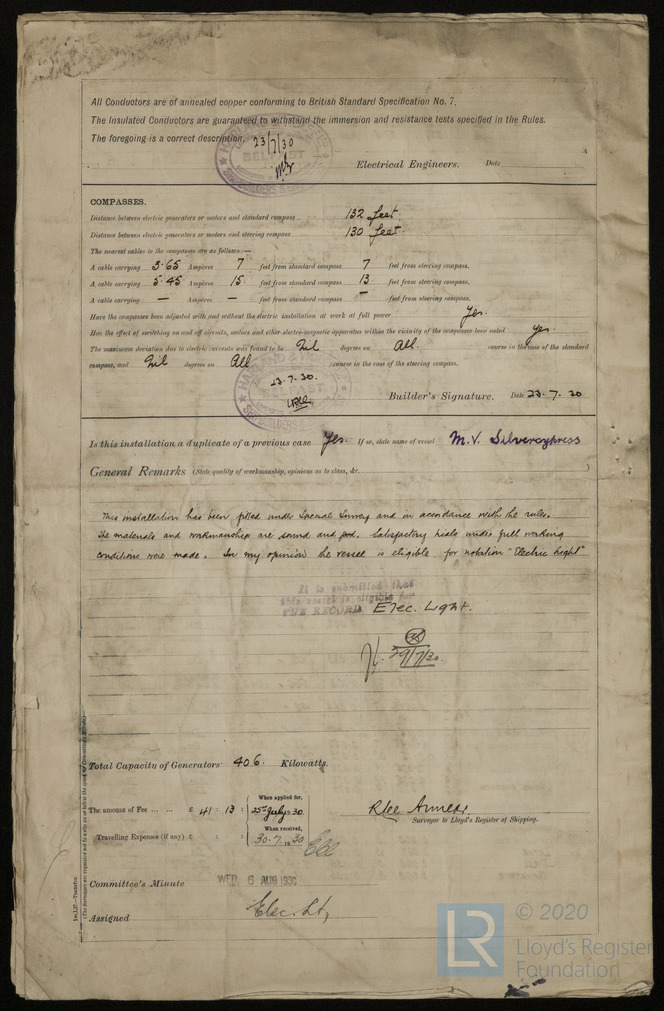 All Conductors are of annealed copper conforming to British Standard Specification No. 7.
The Insulated Conductors are guaranteed to withstand the immersion and resistance tests specified in the Rules.
The foregoing is a correct description.
23/7/30
BELFAST
SHIPBUILDERS &
Electrical Engineers. Date
COMPASSES.
Distance between electric generators or motors and standard compass 132 feet.
Distance between electric generators or motors and steering compass 130 feet.
The nearest cables to the compasses are as follows:—
A cable carrying 3.65 Ampères 7 feet from standard compass 7 feet from steering compass.
A cable carrying 5.45 Ampères 15 feet from standard compass 13 feet from steering compass.
A cable carrying — Ampères — feet from standard compass — feet from steering compass.
Have the compasses been adjusted with and without the electric installation at work at full power Yes.
Has the effect of switching on and off circuits, motors and other electro-magnetic apparatus within the vicinity of the compasses been noted Yes.
The maximum deviation due to electric currents was found to be Nil degrees on All. course in the case of the standard
compass, and Nil degrees on All course in the case of the steering compass.
HARLAND & WOLFF
23.7.30.
BELFAST
SHIPBUILDERS
Builder's Signature. Date 23.7.30
Is this installation a duplicate of a previous case Yes. If so, state name of vessel M.V. Silvercypress
General Remarks (State quality of workmanship, opinions as to class, &c. )
This installation has been fitted under Special Survey and in accordance with the rules.
The materials and workmanship are sound and good. Satisfactory trials under full working
conditions were made. In my opinion the vessel is eligible for notation "Electric Light"
It is submitted that
this vessel is eligible for
THE RECORD. Elec. Light.
29/7/30.
Total Capacity of Generators 406. Kilowatts.
The amount of Fee ... ... £ 41 : 13 :
When applied for,
25th July 1930.
Travelling Expenses (if any) £ : :
When received,
30.7.1930
Surveyor to Lloyd's Register of Shipping.
Committee's Minute WED. 6 AUG 1930
Assigned Elec. Lt,
1m.1.27.—Transfer.
LR © 2020
Lloyd's Register
Foundation